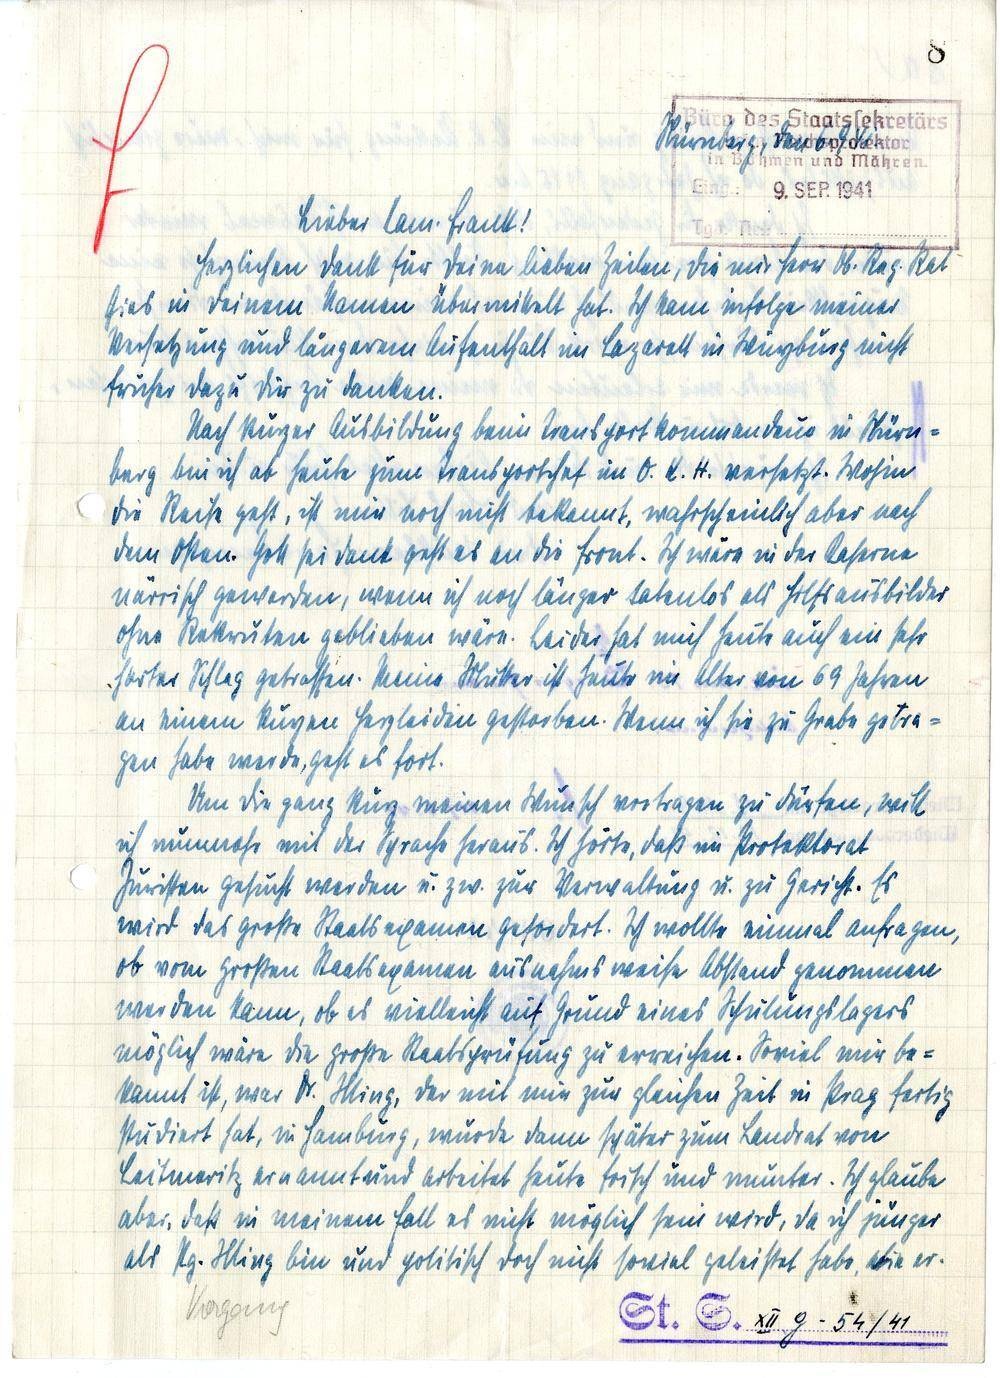 8
Büro des Staatssekretärs
Reichsprotektor
in Böhmen und Mähren.
Eing.: 9. SEP. 1941
Tgb. Nr.:
Nürnberg, den 6.9.41
Lieber Kam. Frank!
Herzlichen Dank für Deine lieben Zeilen, die mir Herr Ob. Reg. Rat
Gies in Deinem Namen übermittelt hat. Ich kam infolge meiner
Versetzung und längerem Aufenthalt im Lazarett in Würzburg nicht
früher dazu Dir zu danken.
Nach kurzer Ausbildung beim Transportkommandeur in Nürn=
berg bin ich ab heute zum Transportchef im O. K. H. versetzt. Wohin
die Reise geht, ist mir noch nicht bekannt, wahrscheinlich aber nach
dem Osten. Gott sei dank geht es an die Front. Ich wäre in der Kaserne
närrisch geworden, wenn ich noch länger tatenlos als Hilfsausbilder
ohne Rekruten geblieben wäre. Leider hat mich heute auch ein sehr
harter Schlag getroffen. Meine Mutter ist heute im Alter von 69 Jahren
an einem kurzen Herzleiden gestorben. Wenn ich sie zu Grabe getra=
gen habe werde, geht es fort.
Um Dir ganz kurz meinen Wunsch vortragen zu dürfen, will
ich nunmehr mit der Sprache heraus. Ich hörte, daß im Protektorat
Juristen gesucht werden u. zw. zur Verwaltung u. zu Gericht. Es
wird das große Staatsexamen gefordert. Ich wollte einmal anfragen,
ob vom großen Staatsexamen ausnahmsweise Abstand genommen
werden kann, ob es vielleicht auf Grund eines Schulungslagers
möglich wäre die große Staatsprüfung zu erreichen. Soviel mir be=
kannt ist, war Dr. Illing, der mit mir zur gleichen Zeit in Prag fertig
studiert hat, in Hamburg, wurde dann später zum Landrat von
Leitmeritz ernannt und arbeitet heute frisch und munter. Ich glaube
aber, daß in meinem Fall es nicht möglich sein wird, da ich jünger
als Pg. Illing bin und politisch doch nicht soviel geleistet habe, wie er.
Vorgang
St. S. XII g - 54/41